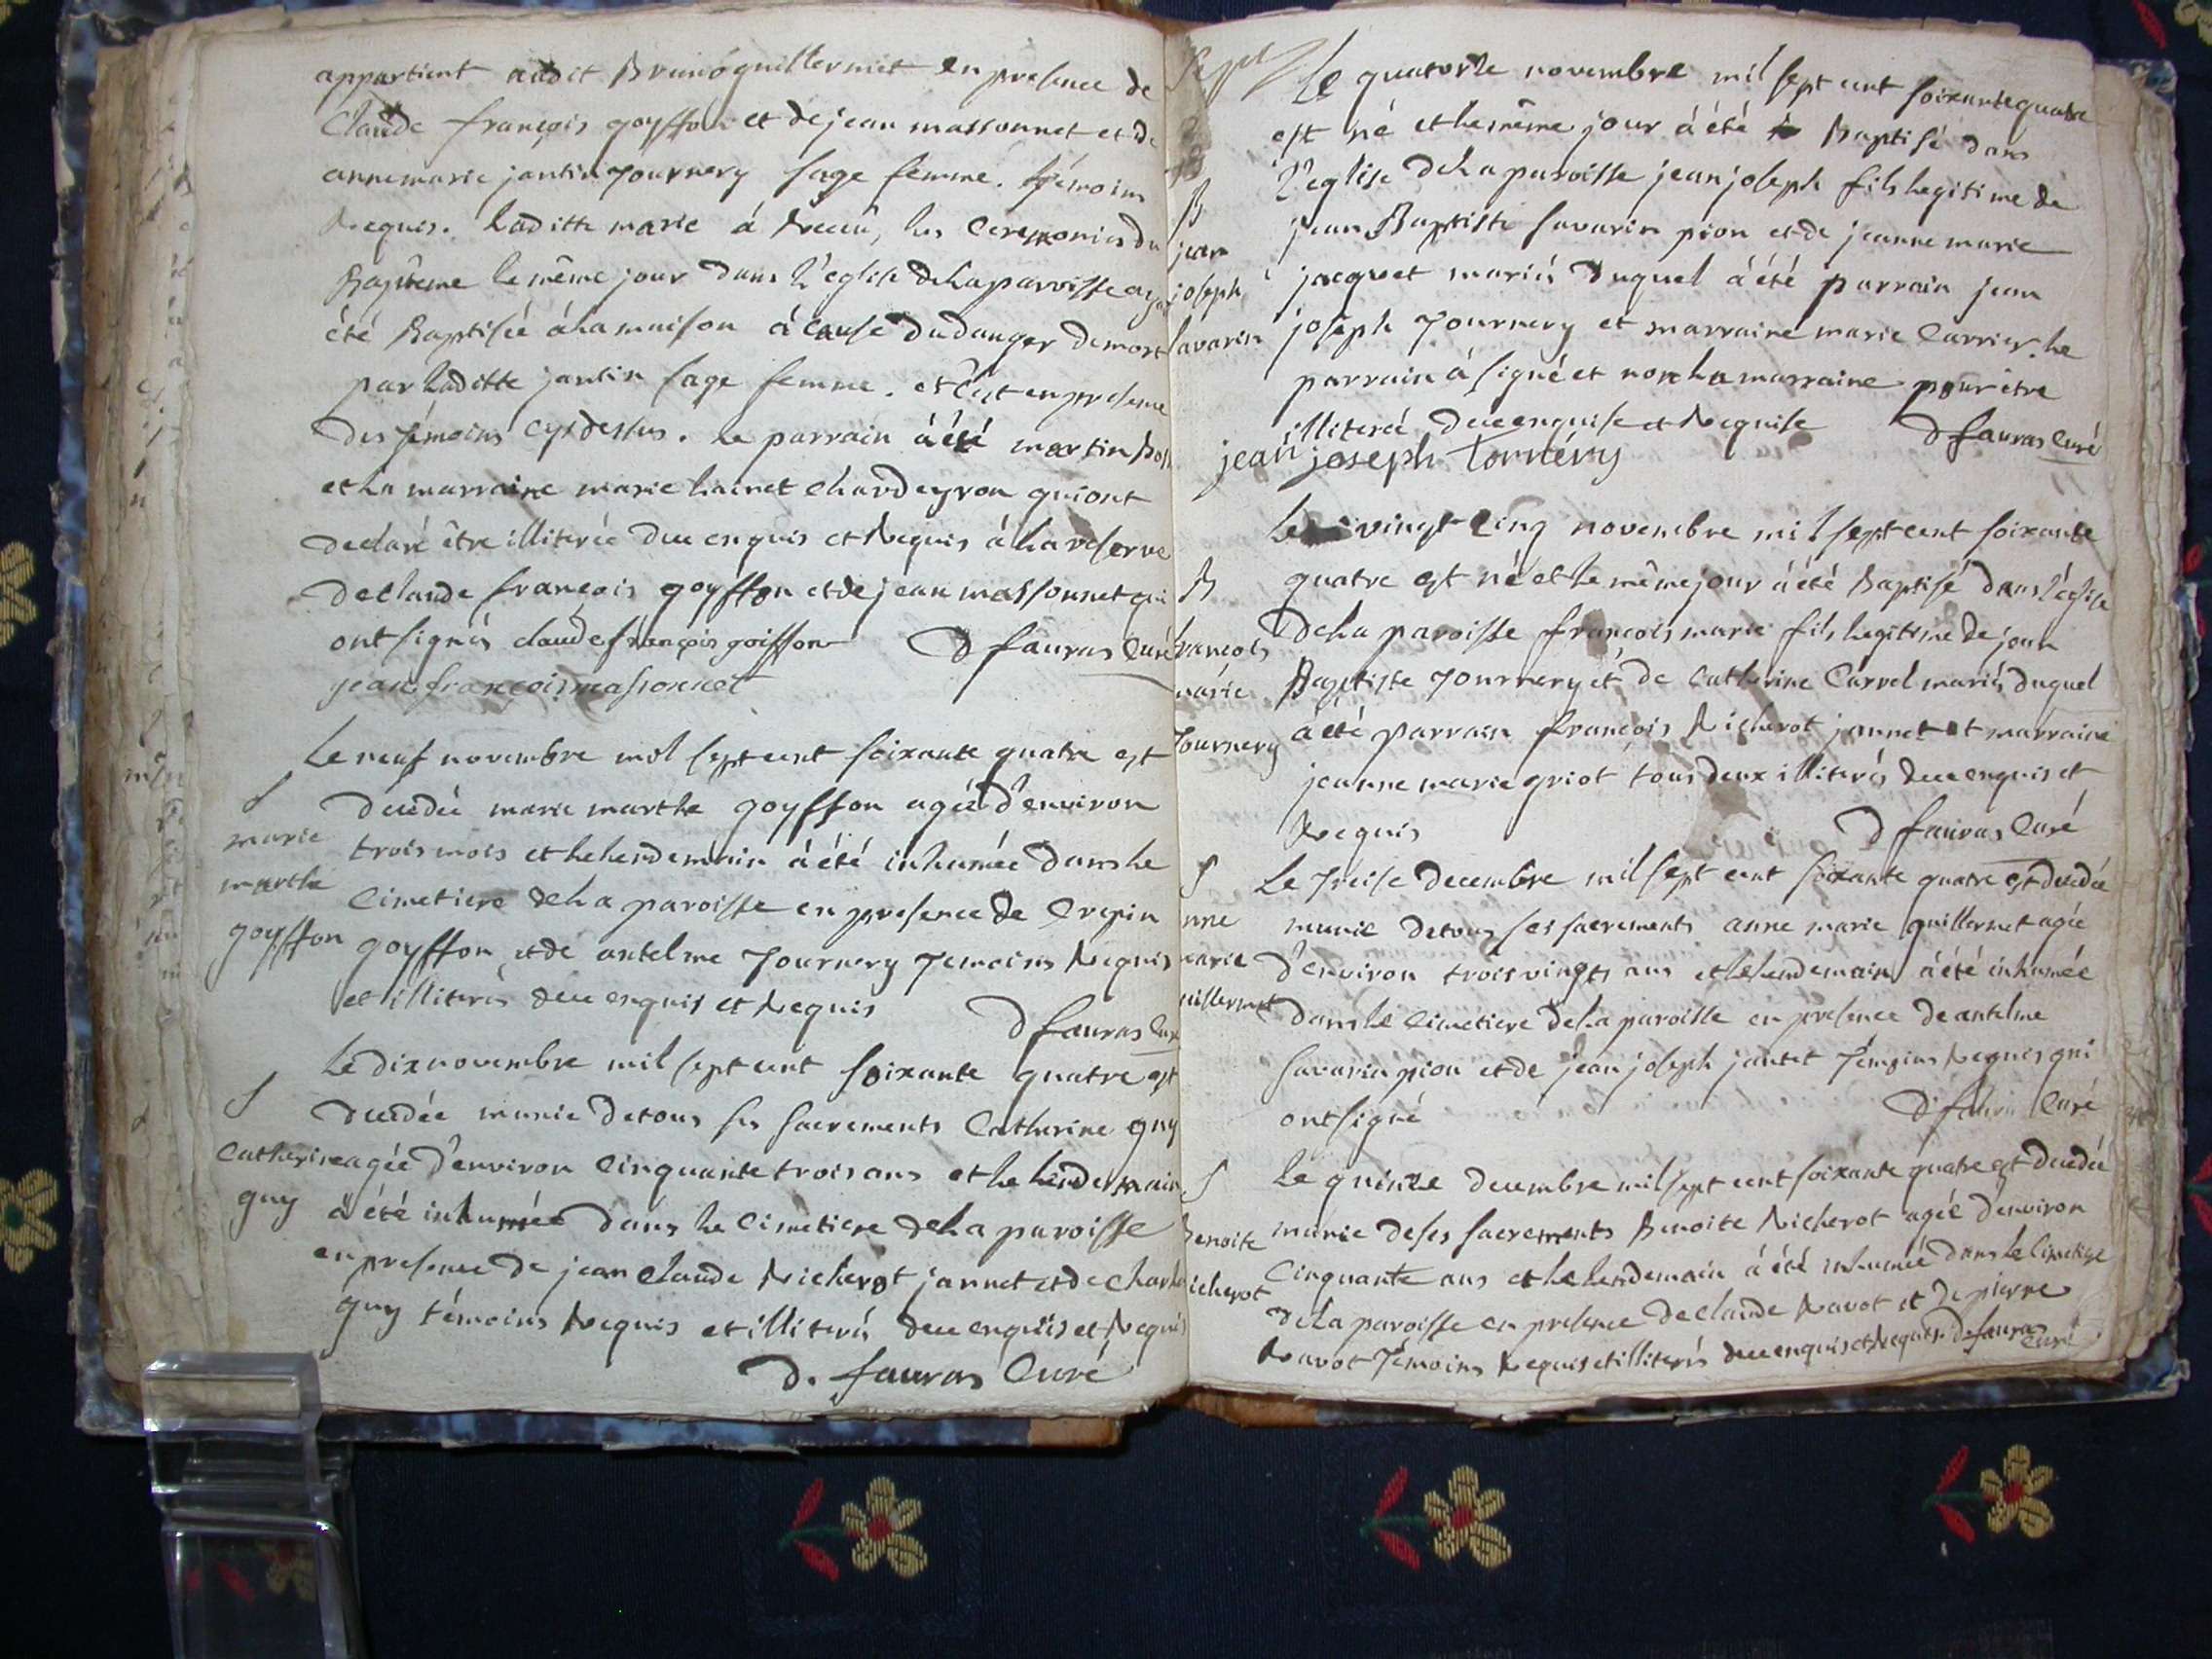 appartient audit Bruno guillermet en presence de
Claude françois goyffon et de jean massonnet et de
anne marie jantin Tournery sage femme. témoins
Requis. laditte marie á Receu, les Ceremonies du
Baptême le même jour dans l'eglise de la paroisse
été Baptisée á la maison á cause du danger de mort
par laditte jantin sage femme. et c'est en presence
des témoins cy dessus. le parrain á été martin
et la marraine marie chardeyron qui ont
declaré être illiterée de ce enquis et Requis á la reserve
de claude françois goyffon et de jean massonnet qui
ont signés claude françois goiffon D fauras Curé
jean françois massonnet
Le neuf novembre mil sept cent soixante quatre est
S
decedée marie marthe goyffon agée d'environ
marie
trois mois et le lendemain á été inhumée dans le
marthe
Cimetiere de la paroisse en presence de Crepin
goyffon
goyffon et de antelme Tournery Temoins Requis
et illiterés de ce enquis et Requis
D fauras Curé
Le dix novembre mil sept cent soixante quatre est
S
decedée munie de tous ses sacrements Catherine guy
Catherine
agée d'environ Cinquante trois ans et le lendemain
guy
á été inhumée dans le Cimetiere de la paroisse
en presence de jean Claude Richerot jannet et de Charles
guy témoins Requis et illiterés de ce enquis et Requis
D. fauras Curé
Le quatorze novembre mil sept cent soixante quatre
est né et le même jour á été Baptisé dans
l'eglise de la paroisse jean joseph fils legitime de
B
jean
joseph
savarin
jean Baptiste savarin pion et de jeanne marie
jacquet mariés duquel á été parrain jean
joseph Tournery et marraine marie Carrier. le
parrain á signé et non la marraine pour être
illiterée de ce enquise et Requise D fauras Curé
jean joseph tornéry
Le vingt Cinq novembre mil sept cent soixante
B
quatre est né et le même jour á été Baptisé dans l'église
françois
de la paroisse françois marie fils legitime de jean
marie
Baptiste Tournery et de Catherine Carrel mariés duquel
Tournery
á été parrain françois Richerot jannet et marraine
jeanne marie griot tous deux illiterés de ce enquis et
Requis D fauras Curé
S
Le Treise decembre mil sept cent soixante quatre est decedée
nne
munie de tous ses sacrements anne marie guillermet agée
marie
d'environ trois vingts ans et le lendemain á été inhumée
uillermet
dans le Cimetiere de la paroisse en presence de antelme
savarin pion et de jean joseph jantet Témoins Requis qui
ont signé D fauras Curé
S
Le quinze decembre mil sept cent soixante quatre est decedée
Benoite
munie de ses sacrements Benoite Richerot agée d'environ
icherot
Cinquante ans et le lendemain á été inhumée dans le Cimetiere
de la paroisse en presence de claude Ravot et de pierre
Ravot Témoins Requis et illiterés de ce enquis et Requis. D. fauras
Curé